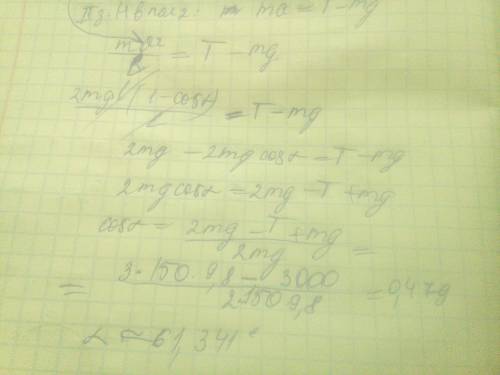 II з. Н в пост: ma = T - mg
mv²/l = T - mg
2mgl(1-cosα)/l = T - mg
2mg - 2mg cosα = T - mg
2mg cosα = 2mg - T + mg
cosα = (2mg - T + mg)/2mg =
= (3·150·9,8 - 3000)/(2·150·9,8) = 0,479
α ≈ 61,341°